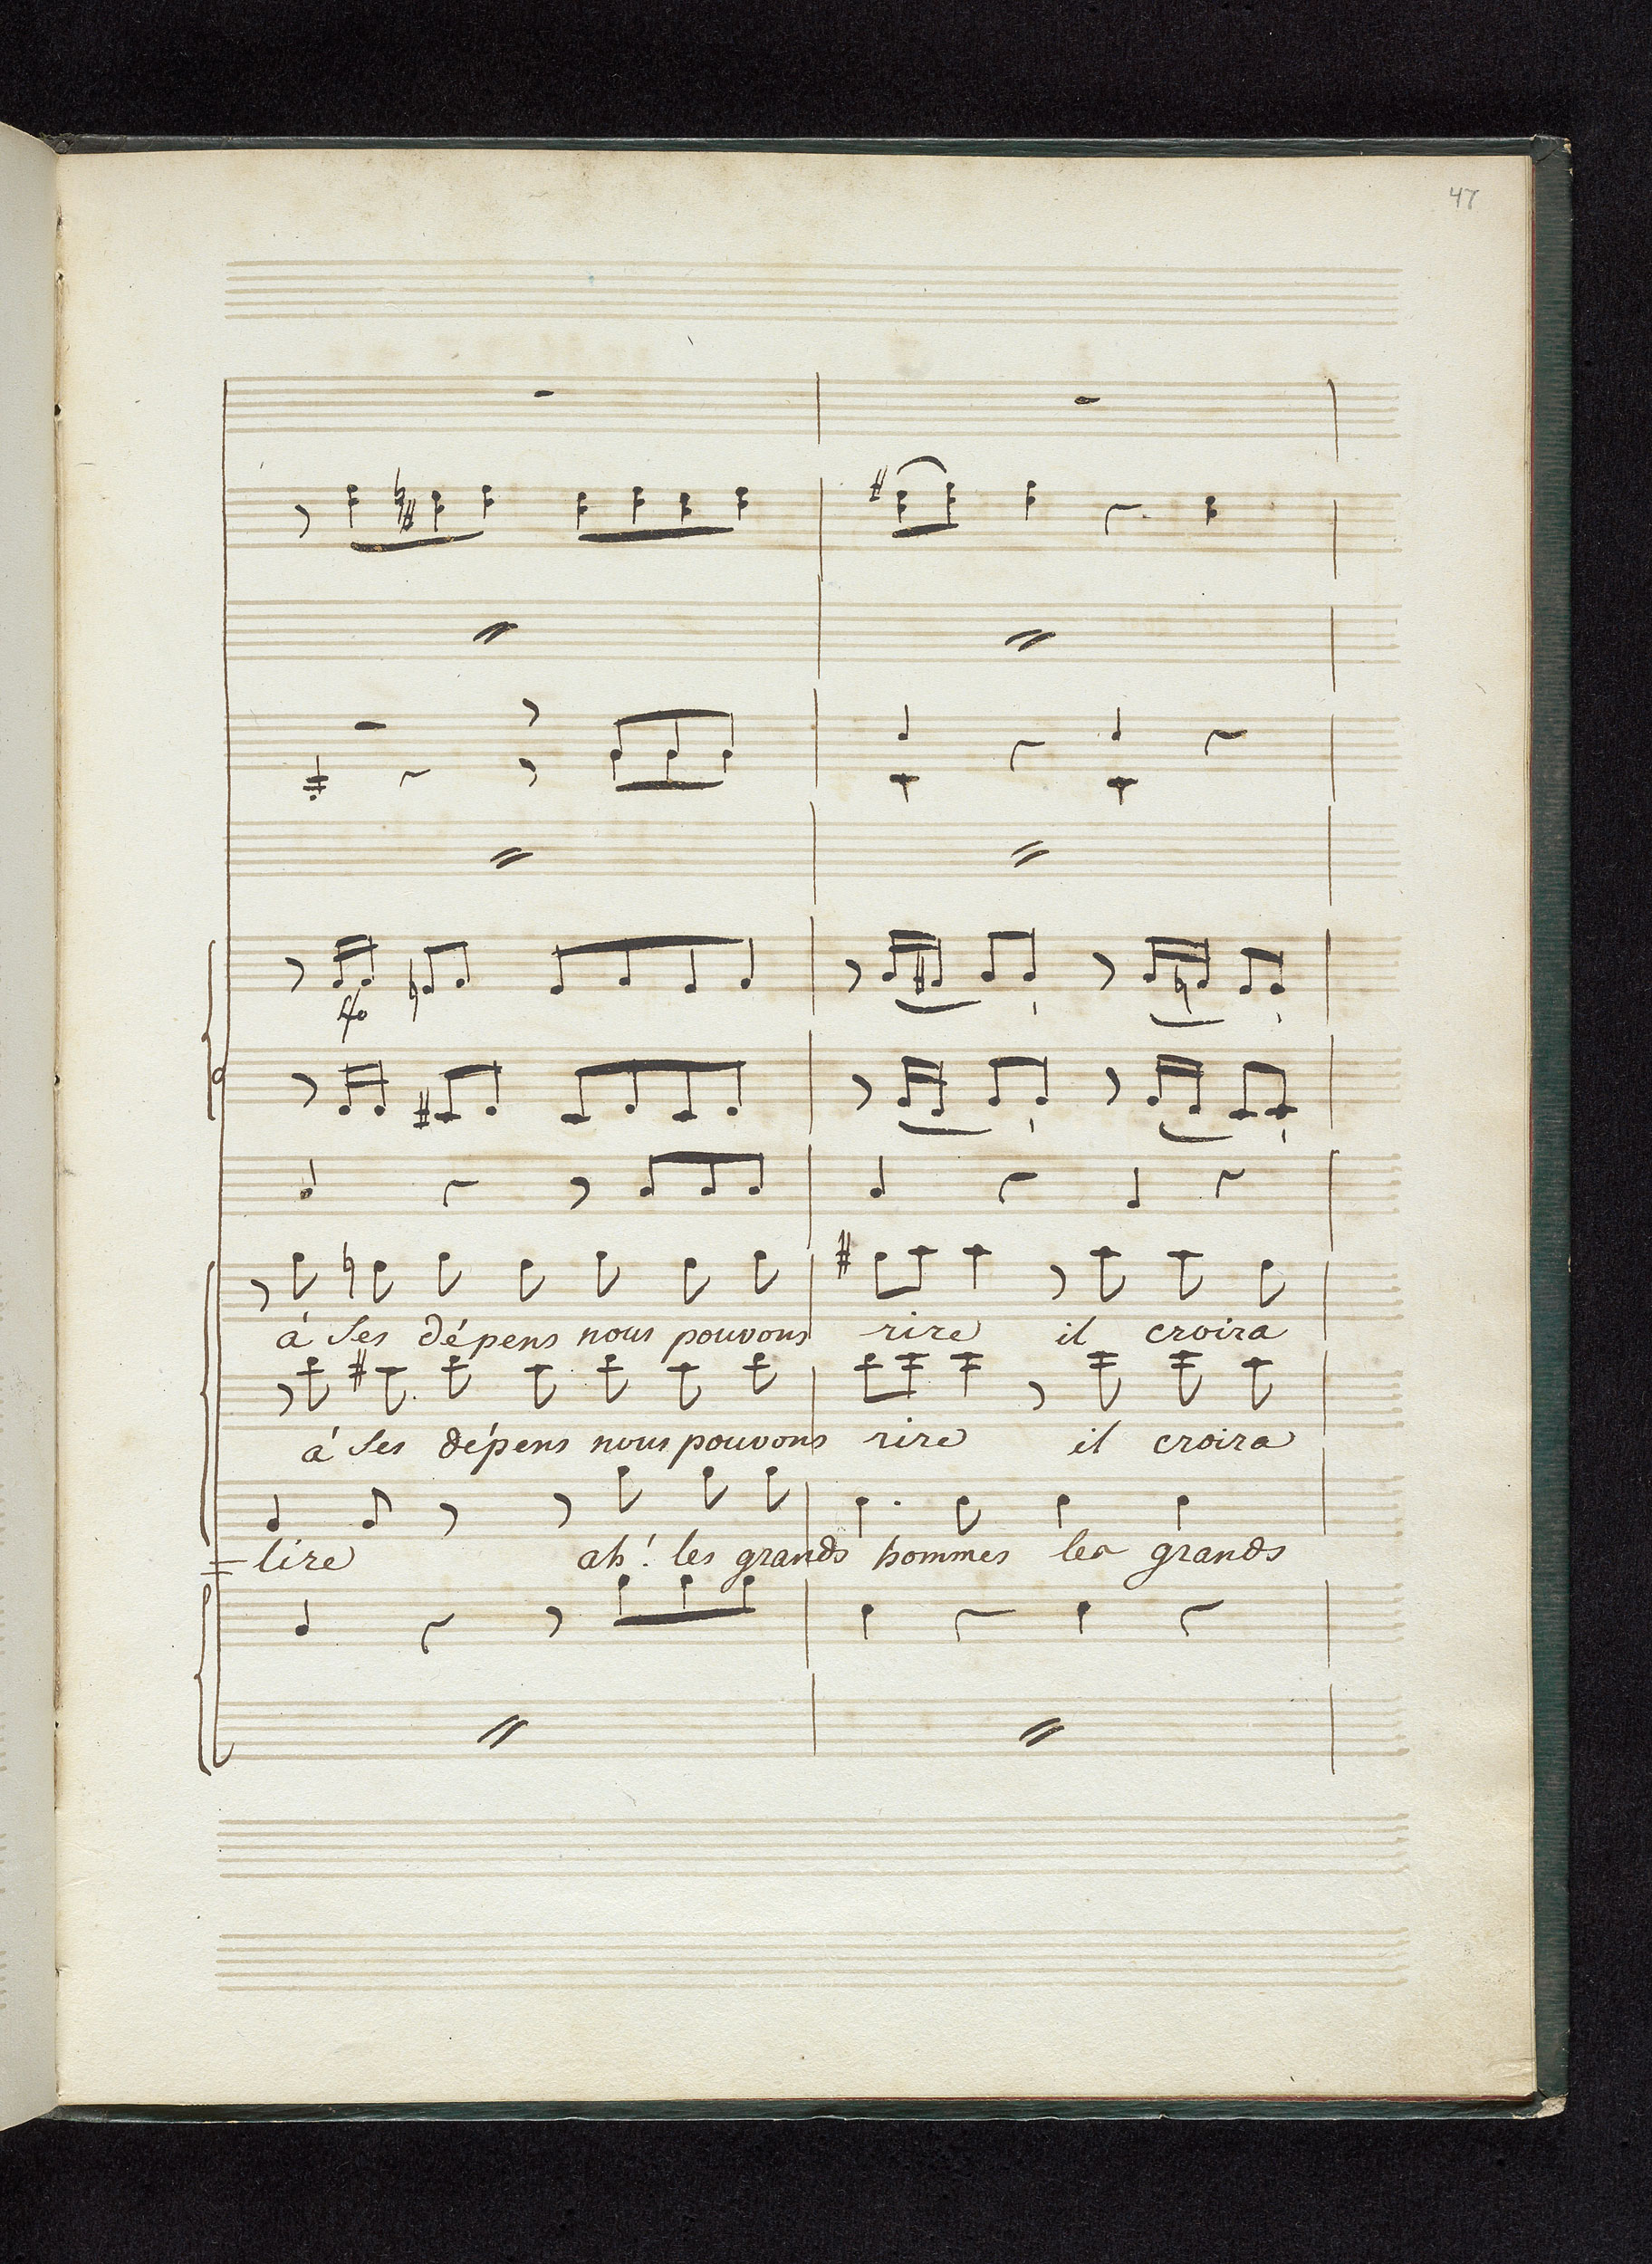 47
fo
à ses dépens nous pouvons rire il croira
à ses dépens nous pouvons rire il croira
=lire ah! les grands hommes les grands